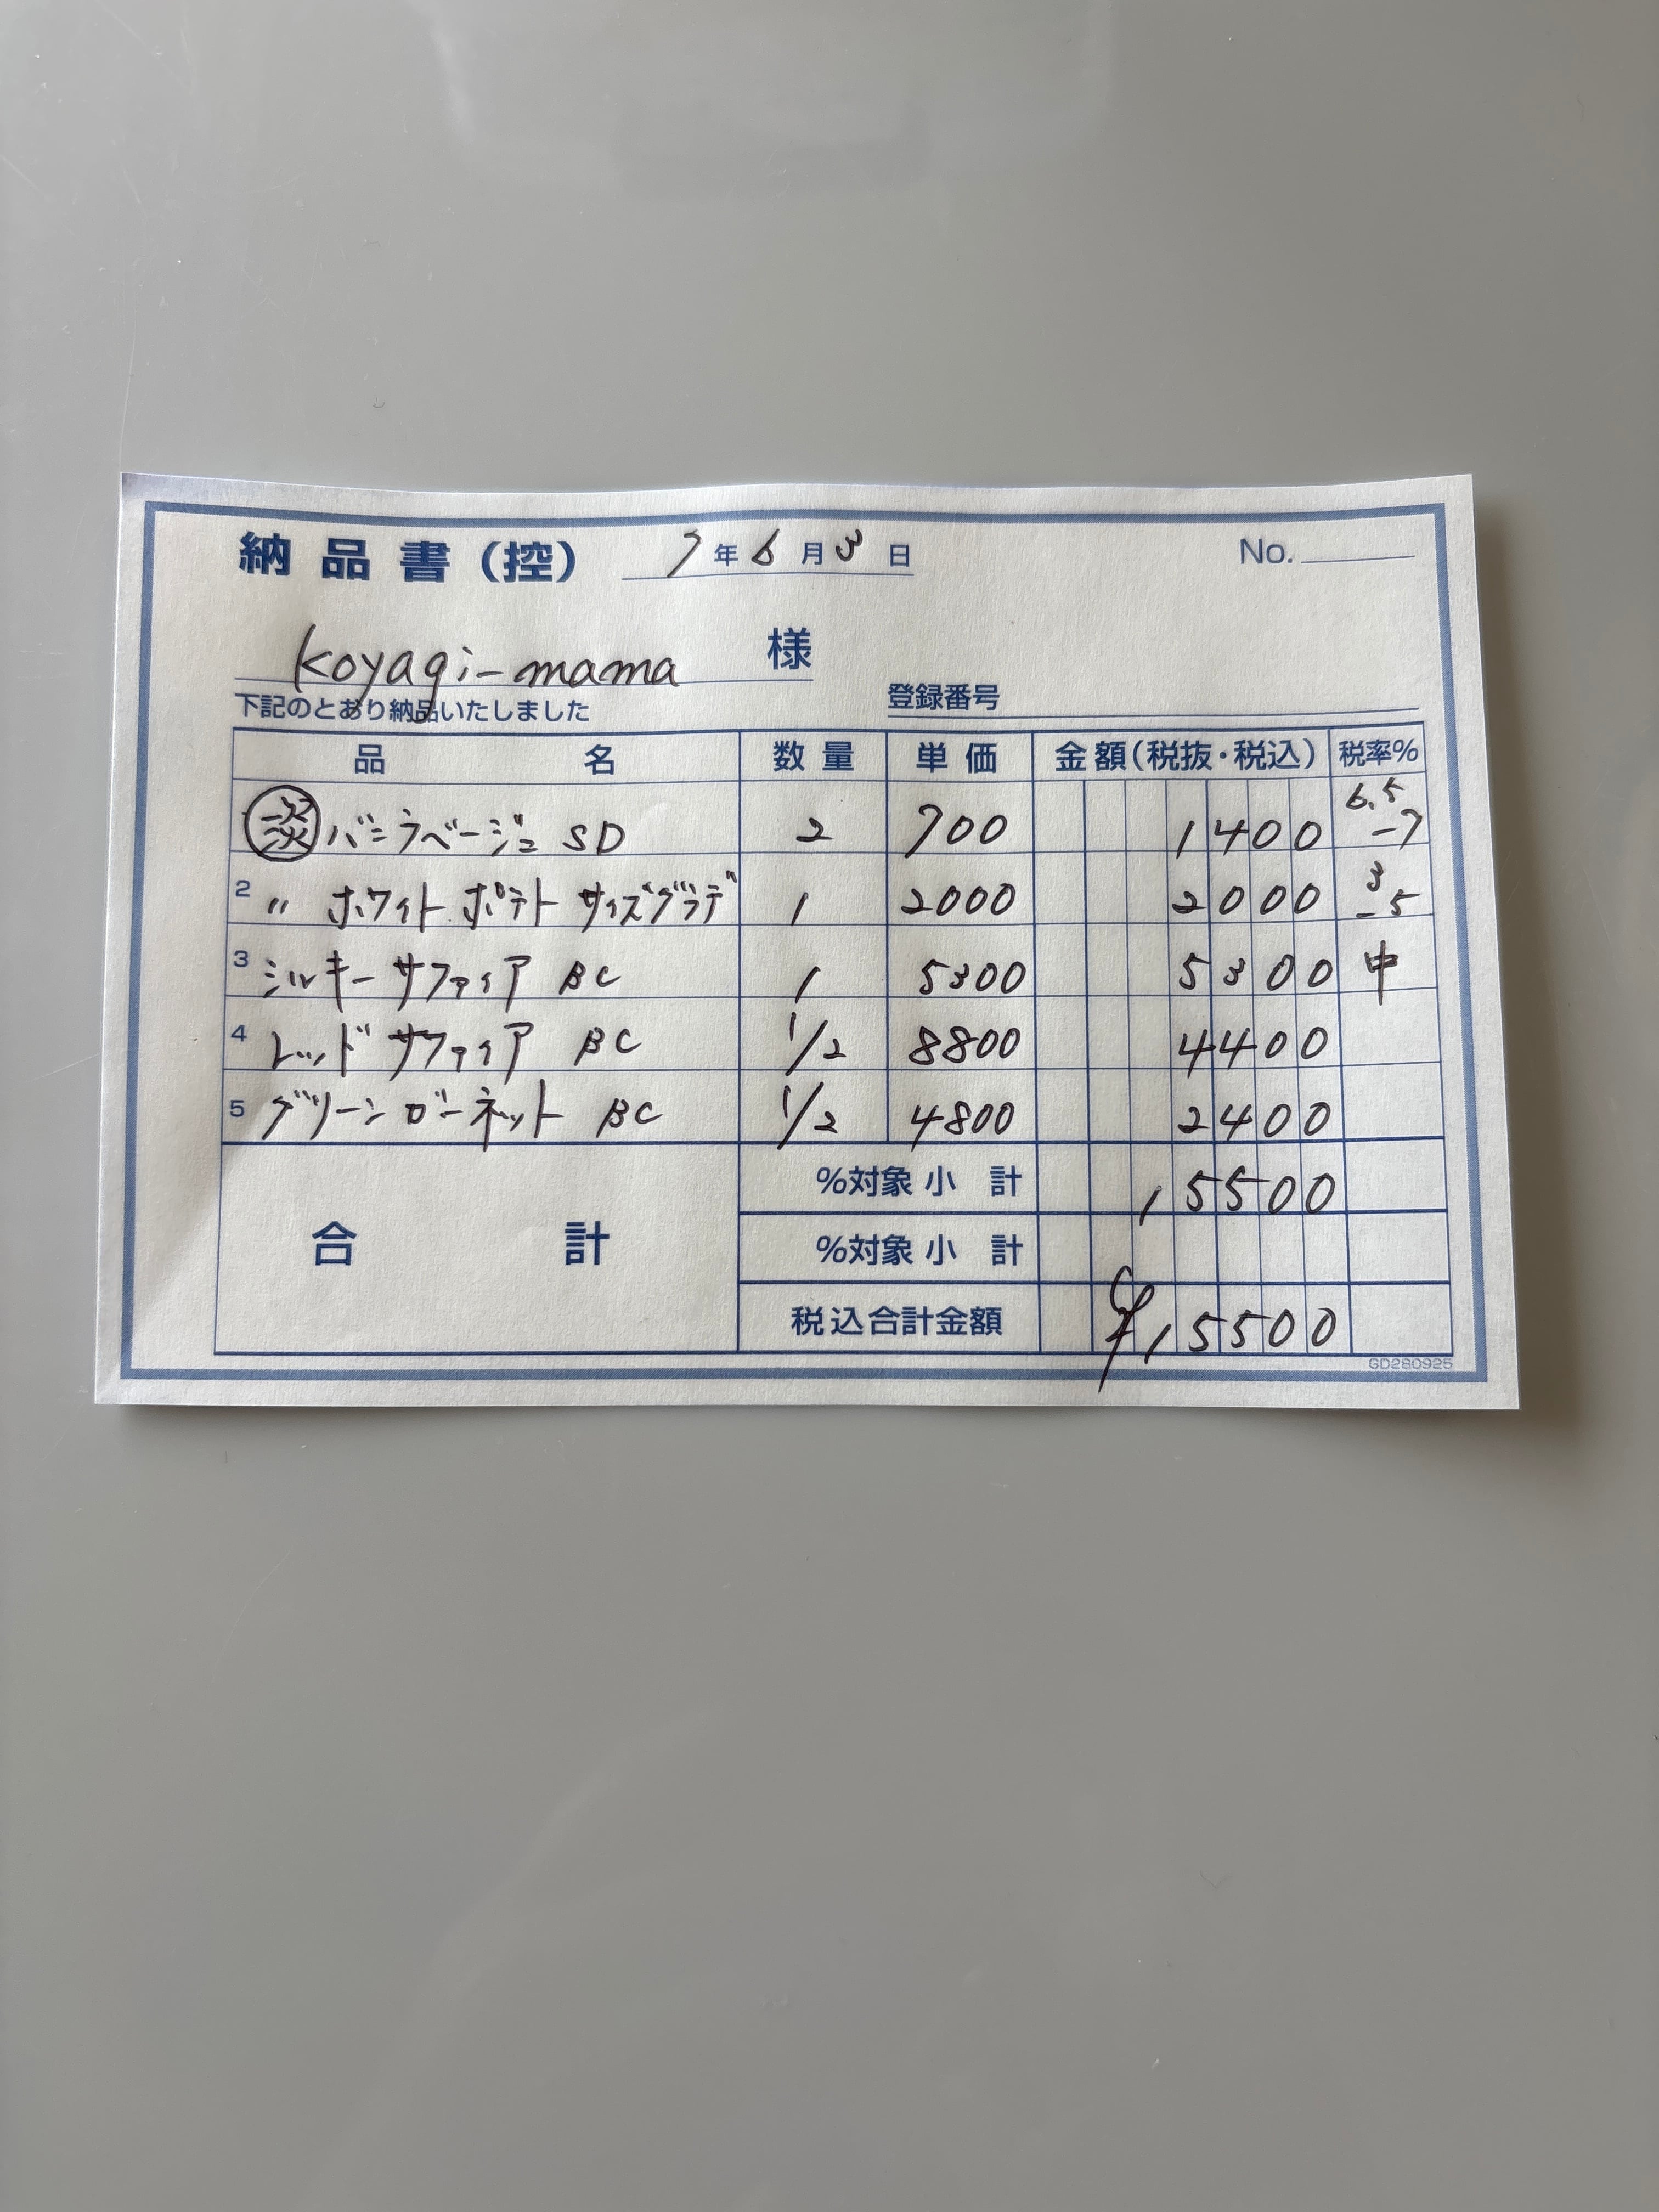 納品書(控) 7年6月3日 No.
koyagi-mama 様
下記のとおり納品いたしました 登録番号
品名 数量 単価 金額(税抜・税込) 税率%
淡 バニラベージュ SD 2 700 1400 6.5-7
2 〃 ホワイトポテト サイズグラデ 1 2000 2000 3-5
3 シルキーサファイア BC 1 5300 5300 中
4 レッドサファイア BC 1/2 8800 4400
5 グリーンガーネット BC 1/2 4800 2400
%対象小計 15500
合計 %対象小計
税込合計金額 ¥15500
GD280925